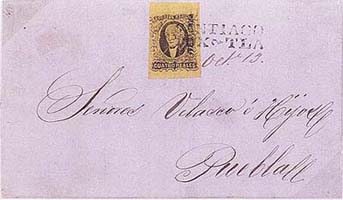 CUATRO REALES
NTIAGO
TLA
Oct. 13.
Señores Velasco é Hijos
Puebla